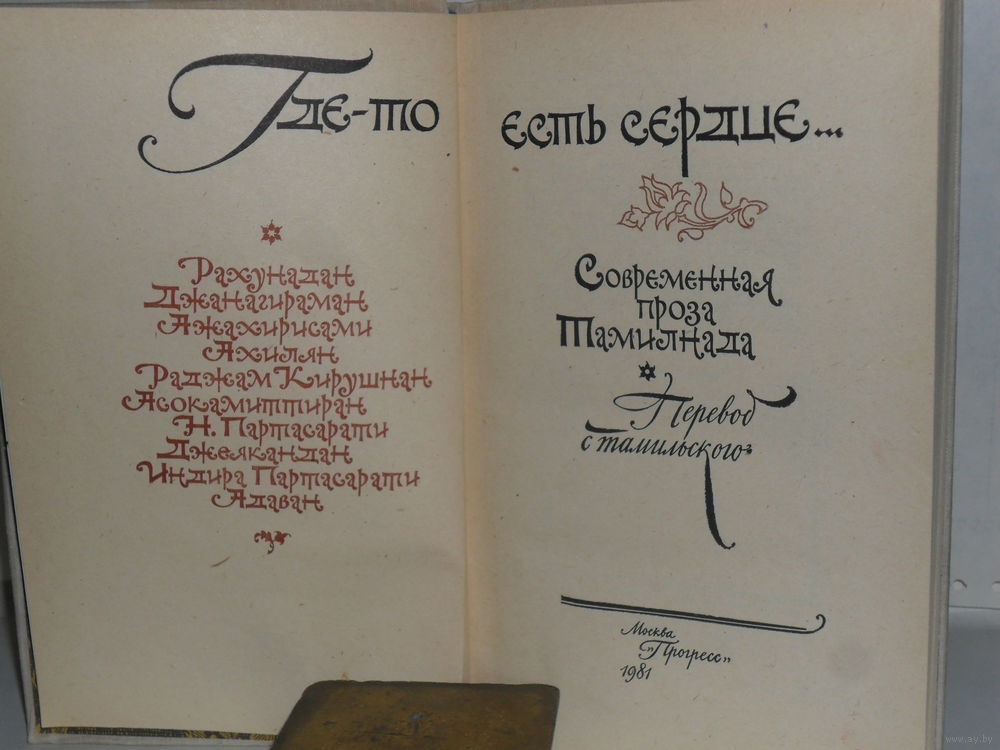 Где-то
Рахунадан
Джанагираман
Ажахирисами
Ахилян
Раджам Кирушнан
Асокамиттиран
Н. Партасарати
Джеякандан
Индира Партасарати
Адаван
есть сердце...
Современная
проза
Тамилнада
Перевод
с тамильского
Москва
„Прогресс"
1981
www.ay.by